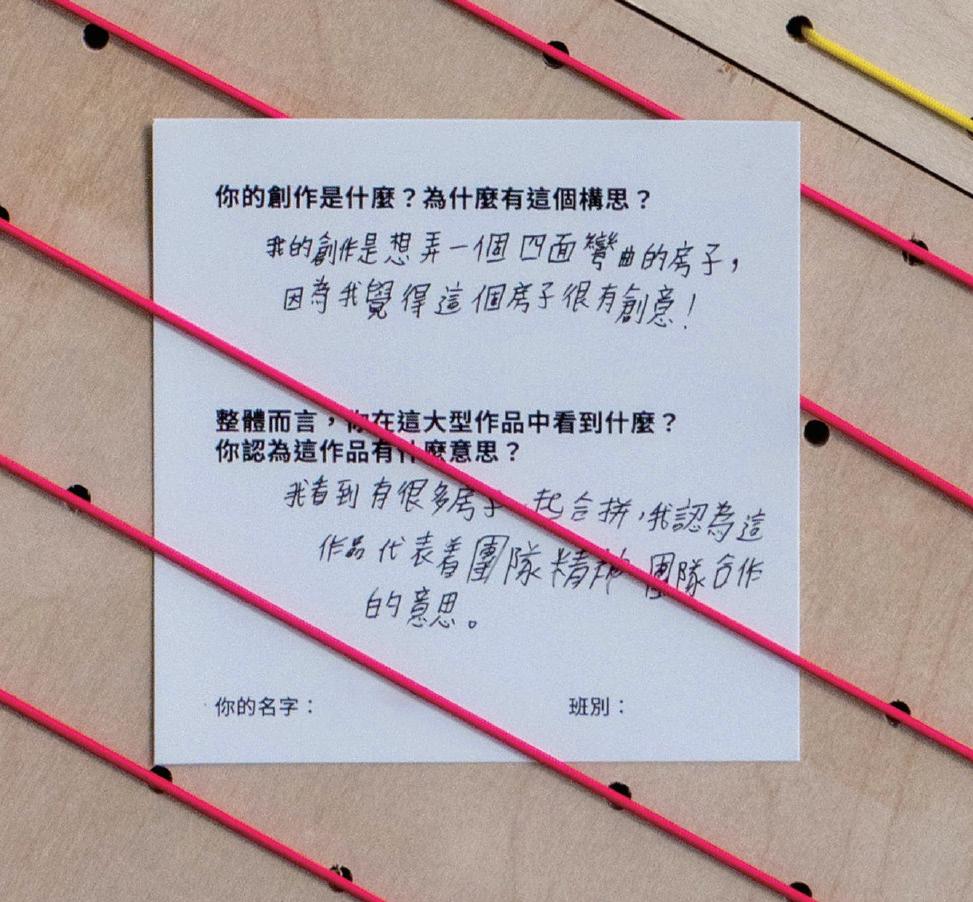 你的創作是什麼？為什麼有這個構思？
我的創作是想弄一個四面彎曲的房子，
因為我覺得這個房子很有創意！
整體而言，你在這大型作品中看到什麼？
你認為這作品有什麼意思？
我看到有很多房子一起合拼，我認為這
作品代表着團隊精神 團隊合作
的意思。
你的名字：
班別：